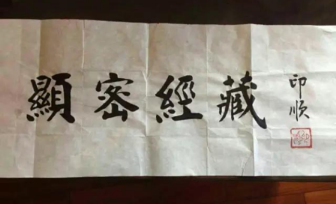 顯密經藏
印順